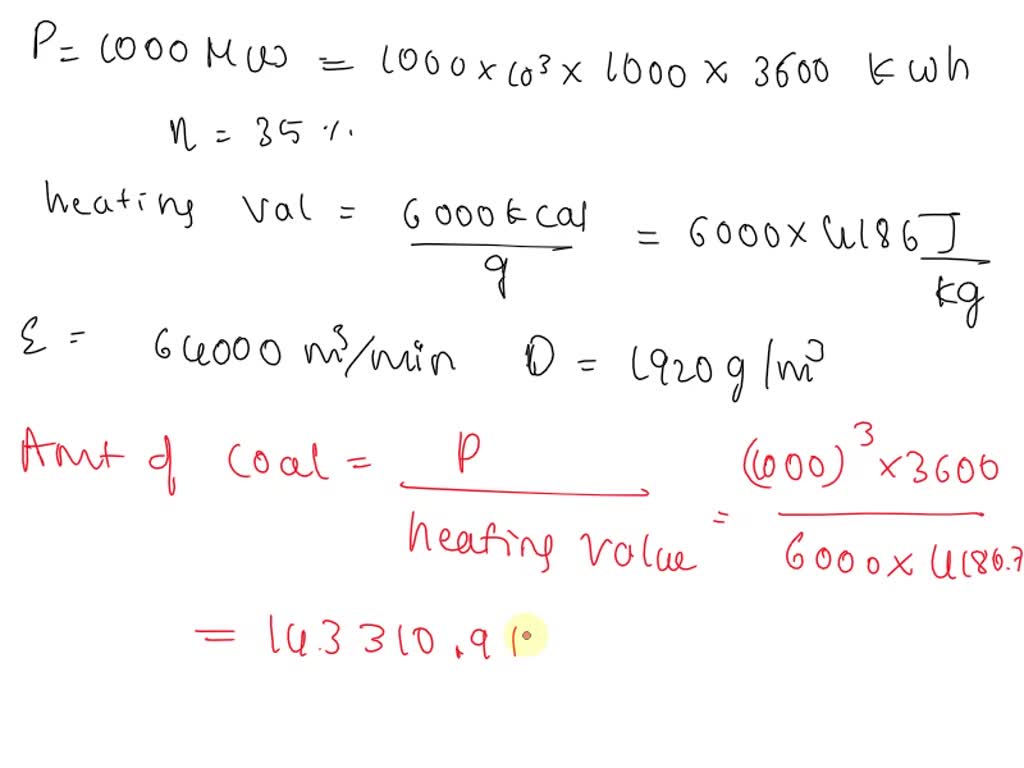 P = 1000 MW = 1000 × 10³ × 1000 × 3600 kwh
η = 35 %
heating val = 6000 kcal / g = 6000 × 4186 J / kg
ε = 64000 m³/min D = 1920 g/m³
Amt of coal = P / heating value = (1000)³ × 3600 / 6000 × 4186.7
= 143310.91